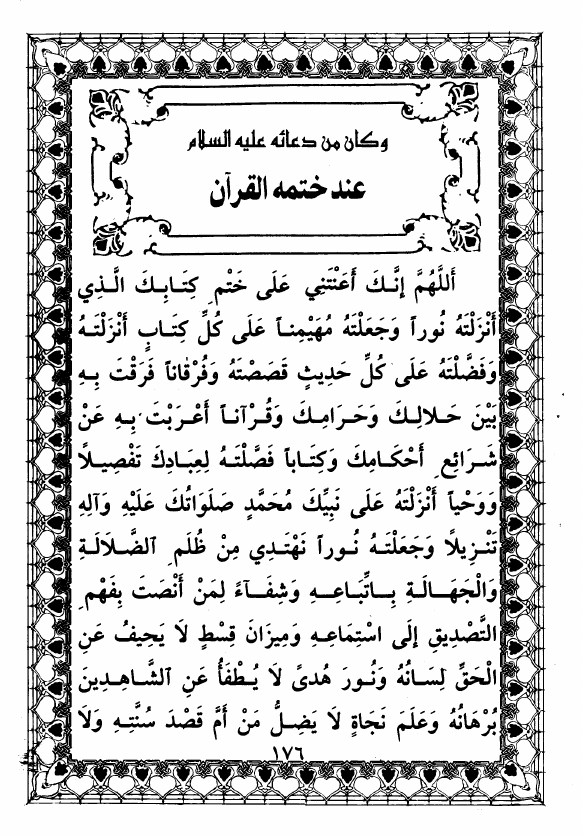 وكان من دعائه عليه السلام
عند ختمه القرآن
أَللَّهُمَّ إِنَّكَ أَعَنْتَنِي عَلَى خَتْمِ كِتَابِكَ الَّذِي
أَنْزَلْتَهُ نُوراً وَجَعَلْتَهُ مُهَيْمِناً عَلَى كُلِّ كِتَابٍ أَنْزَلْتَهُ
وَفَضَّلْتَهُ عَلَى كُلِّ حَدِيثٍ قَصَصْتَهُ وَفُرْقَاناً فَرَقْتَ بِهِ
بَيْنَ حَلالِكَ وَحَرَامِكَ وَقُرْآناً أَعْرَبْتَ بِهِ عَنْ
شَرَائِعِ أَحْكَامِكَ وَكِتَاباً فَصَّلْتَهُ لِعِبَادِكَ تَفْصِيلاً
وَوَحْياً أَنْزَلْتَهُ عَلَى نَبِيِّكَ مُحَمَّدٍ صَلَوَاتُكَ عَلَيْهِ وَآلِهِ
تَنْزِيلاً وَجَعَلْتَهُ نُوراً نَهْتَدِي مِنْ ظُلَمِ الضَّلَالَةِ
وَالْجَهَالَةِ بِاتِّبَاعِهِ وَشِفَآءً لِمَنْ أَنْصَتَ بِفَهْمِ
التَّصْدِيقِ إِلَى اسْتِمَاعِهِ وَمِيزَانَ قِسْطٍ لَا يَحِيفُ عَنِ
الْحَقِّ لِسَانُهُ وَنُورَ هُدىً لَا يُطْفَأُ عَنِ الشَّاهِدِينَ
بُرْهَانُهُ وَعَلَمَ نَجَاةٍ لَا يَضِلُّ مَنْ أَمَّ قَصْدَ سُنَّتِهِ وَلَا
١٧٦